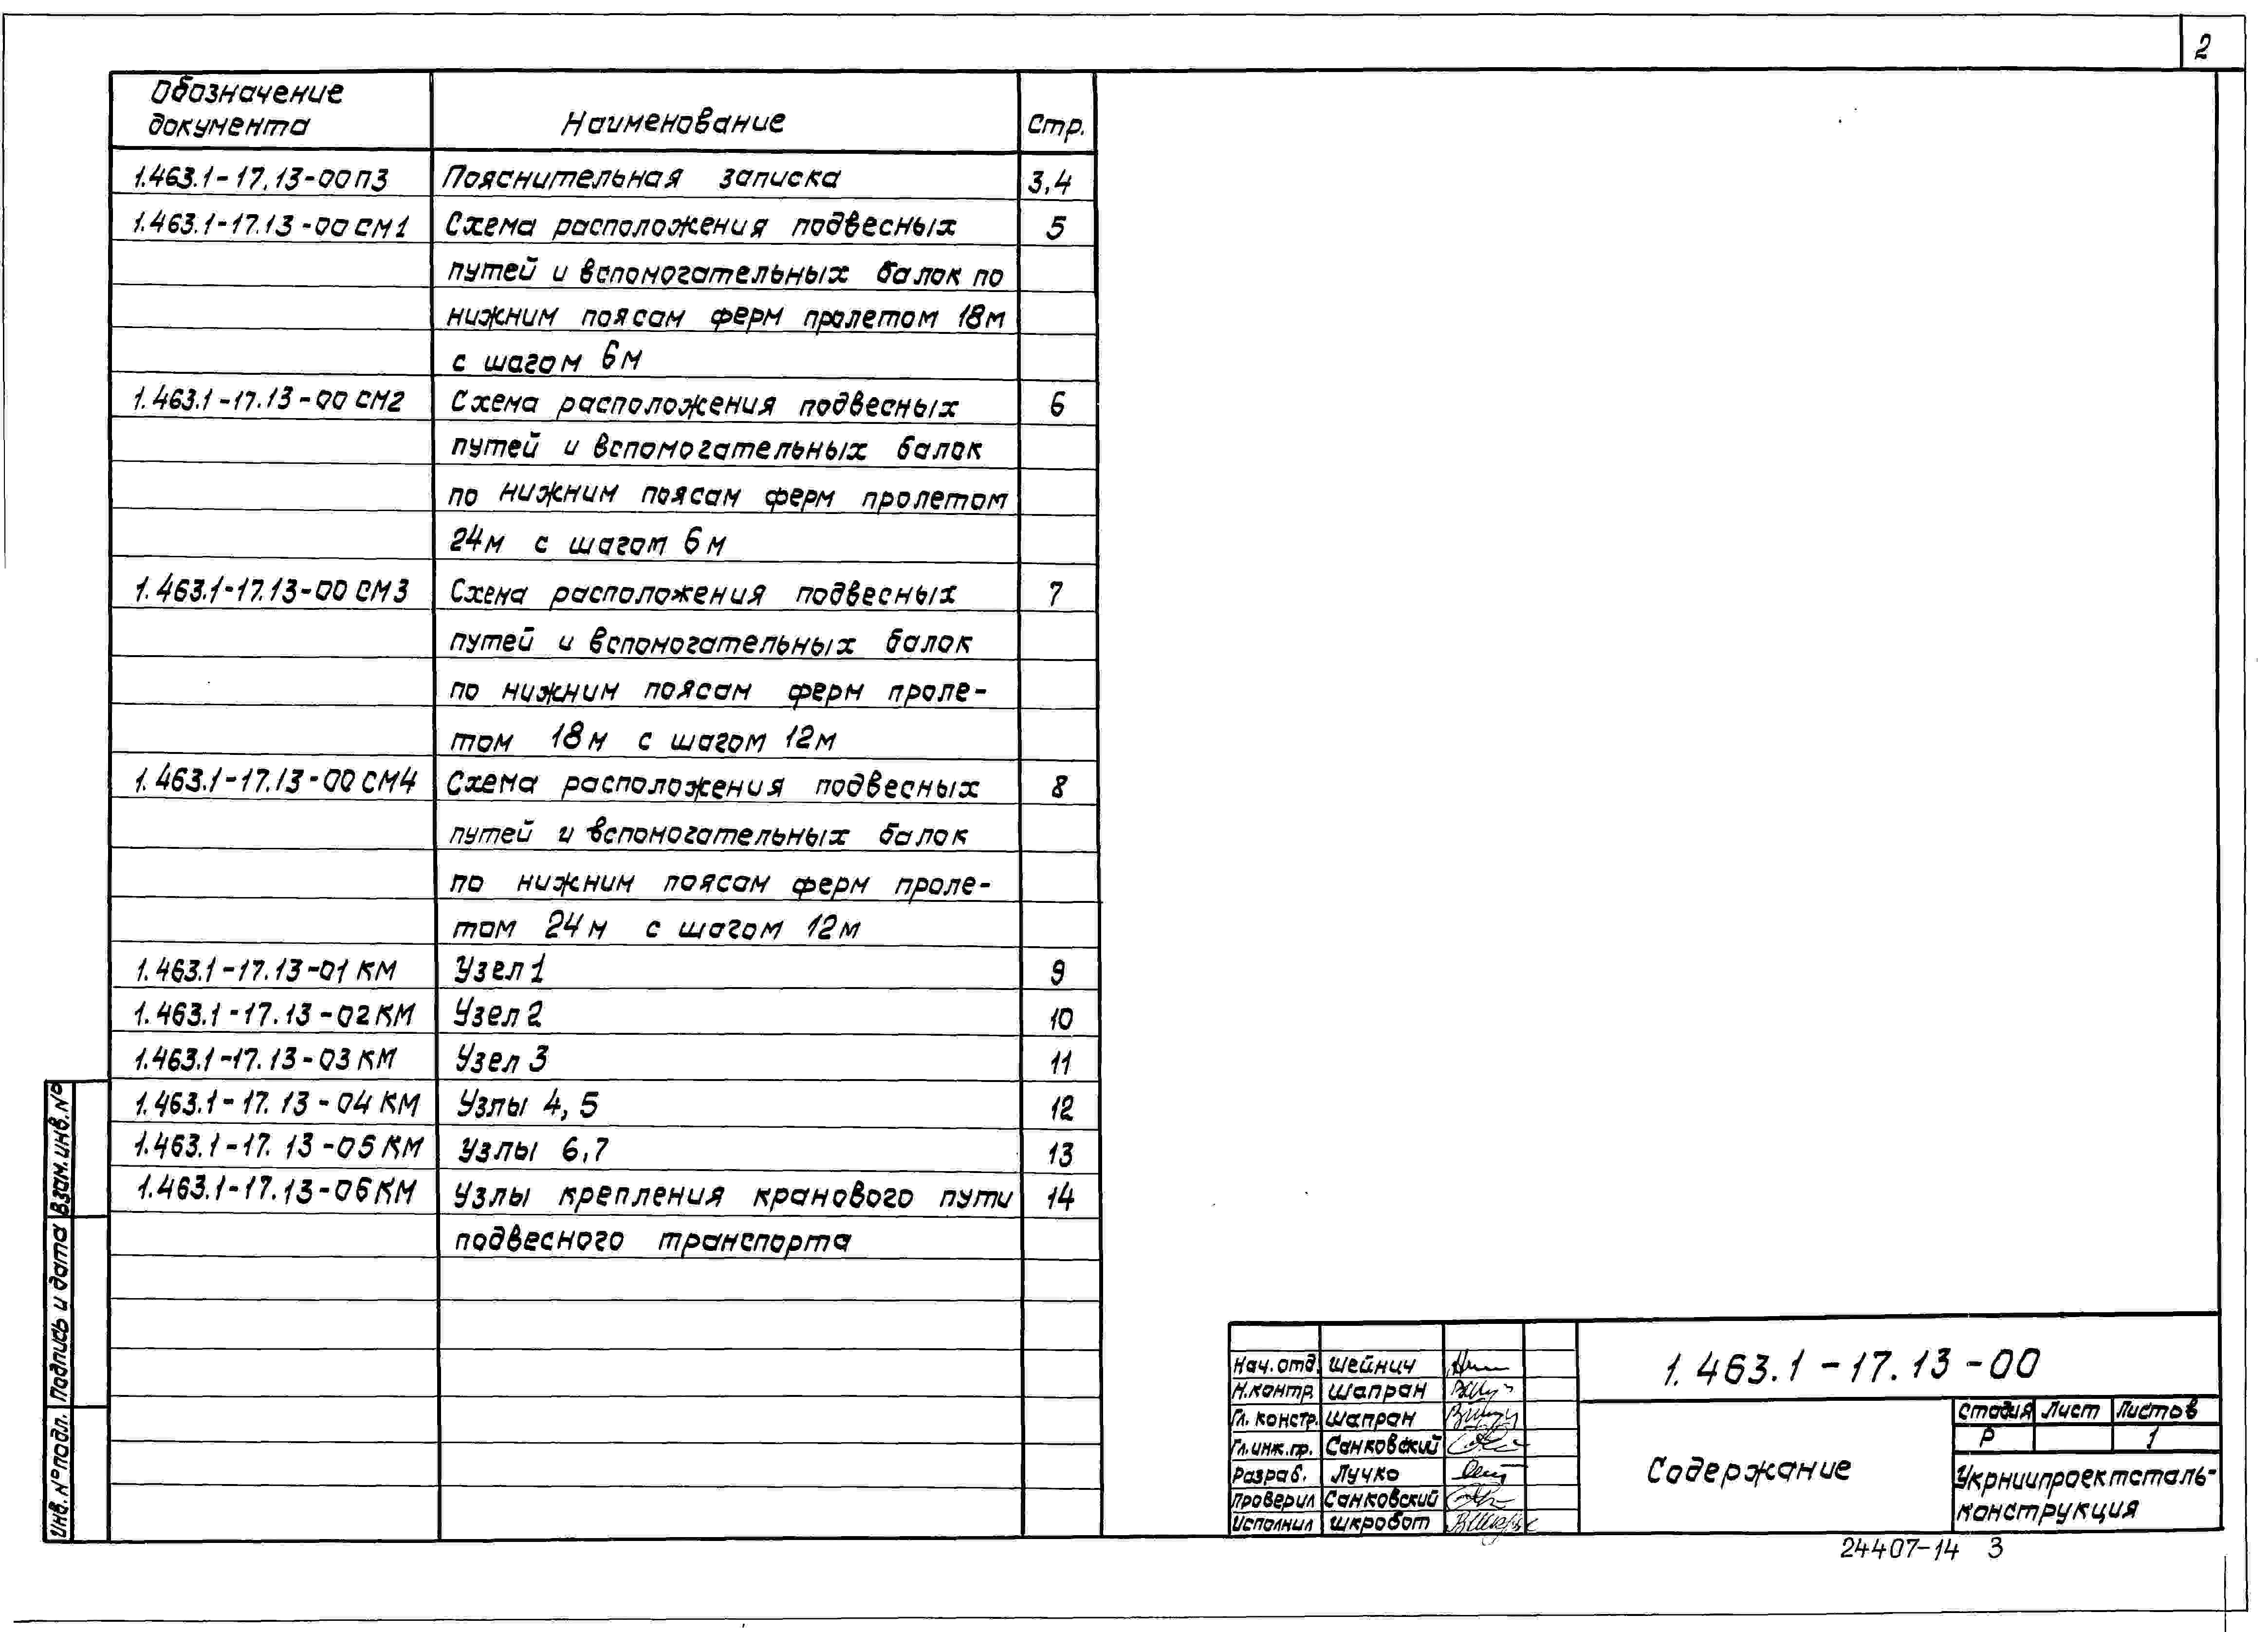 2
Обозначение документа Наименование Стр.
1.463.1-17.13-00ПЗ Пояснительная записка 3,4
1.463.1-17.13-00СМ1 Схема расположения подвесных 5
путей и вспомогательных балок по
нижним поясам ферм пролетом 18м
с шагом 6м
1.463.1-17.13-00СМ2 Схема расположения подвесных 6
путей и вспомогательных балок
по нижним поясам ферм пролетом
24м с шагом 6м
1.463.1-17.13-00СМ3 Схема расположения подвесных 7
путей и вспомогательных балок
по нижним поясам ферм проле-
том 18м с шагом 12м
1.463.1-17.13-00СМ4 Схема расположения подвесных 8
путей и вспомогательных балок
по нижним поясам ферм проле-
том 24м с шагом 12м
1.463.1-17.13-01КМ Узел 1 9
1.463.1-17.13-02КМ Узел 2 10
1.463.1-17.13-03КМ Узел 3 11
1.463.1-17.13-04КМ Узлы 4,5 12
1.463.1-17.13-05КМ Узлы 6,7 13
1.463.1-17.13-06КМ Узлы крепления кранового пути 14
подвесного транспорта
Взам.инв.№
Подпись и дата
Инв.№подл.
Нач.отд. Шейнич
Н.контр. Шапран
Гл.констр. Шапран
Гл.инж.пр. Санковский
Разраб. Лучко
Проверил Санковский
Исполнил Шкробот
1.463.1-17.13-00
Содержание
Стадия Лист Листов
Р 1
Укрниипроектсталь-
конструкция
24407-14 3